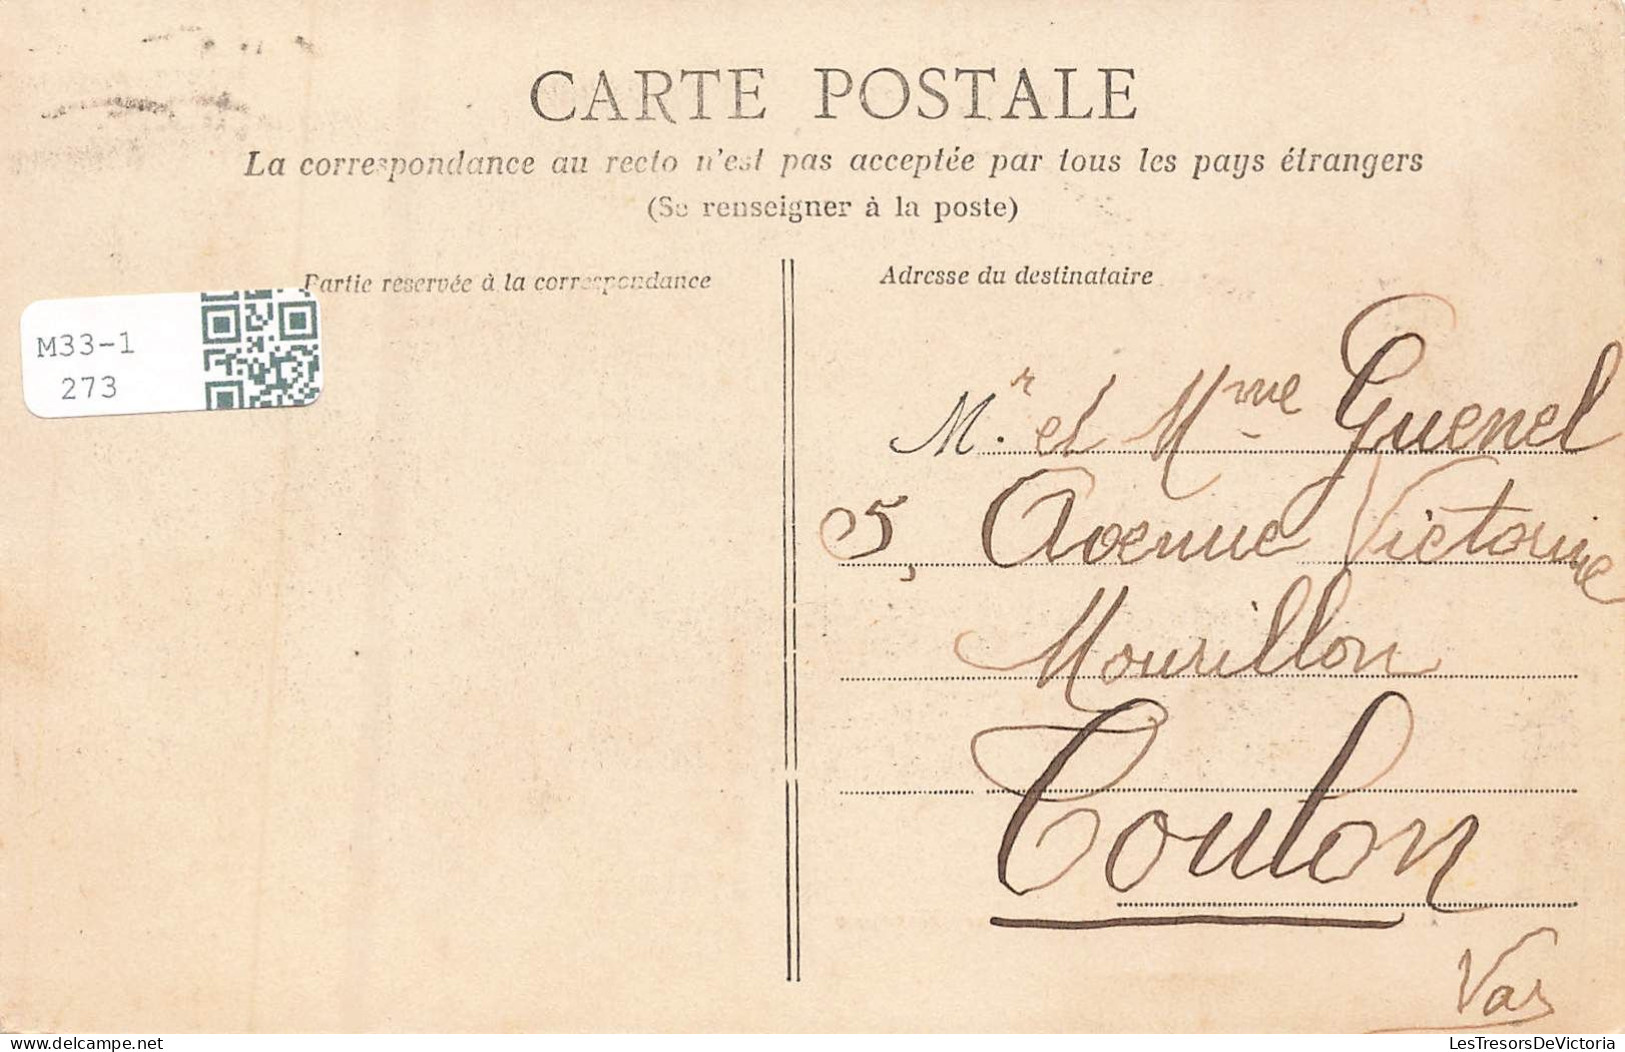 CARTE POSTALE
La correspondance au recto n'est pas acceptée par tous les pays étrangers
(Se renseigner à la poste)
Partie reservée à la correspondance
Adresse du destinataire
M33-1
273
Mr. et Mme Guenel
5, Avenue Victorine
Mourillon
Toulon
Var
LesTresorsDeVictoria